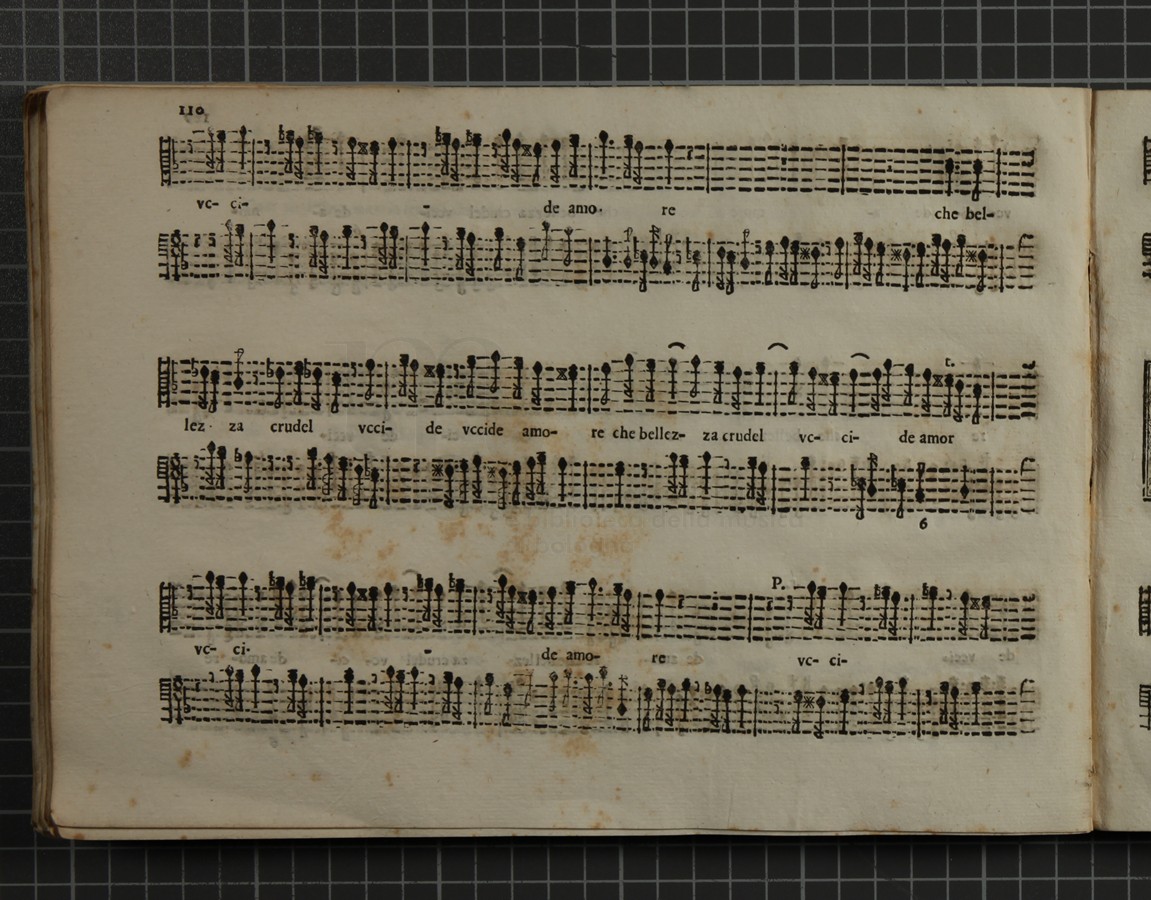 110
vc- ci- - de amo. re che bel-
lez- za crudel vcci- de vccide amo- re che bellez- za crudel vc- ci- de amor
t.
6
P.
vc- ci- - de amo- re vc- ci-